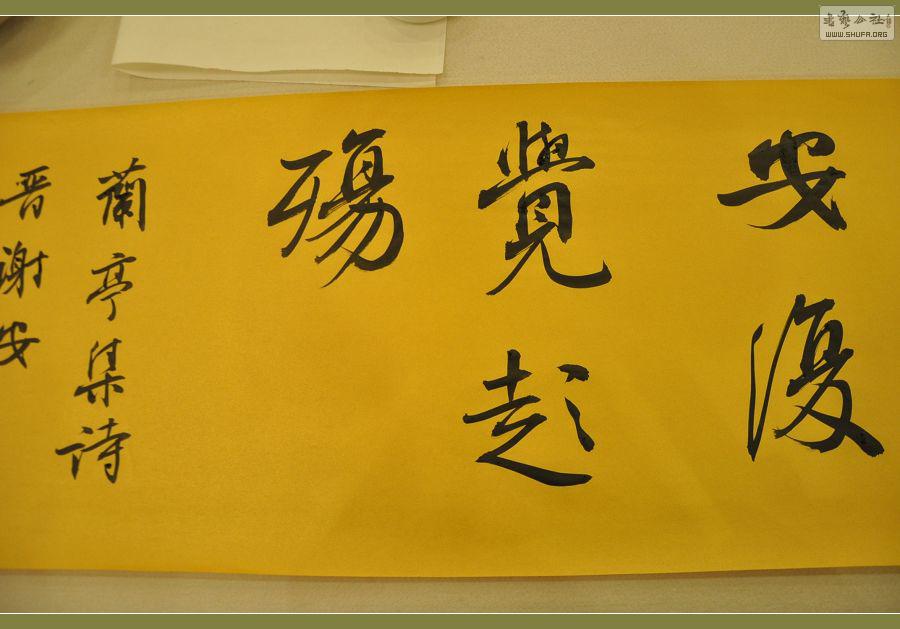 書藝公社
WWW.SHUFA.ORG
安復
覺彭
殤
蘭亭集詩
晋謝安